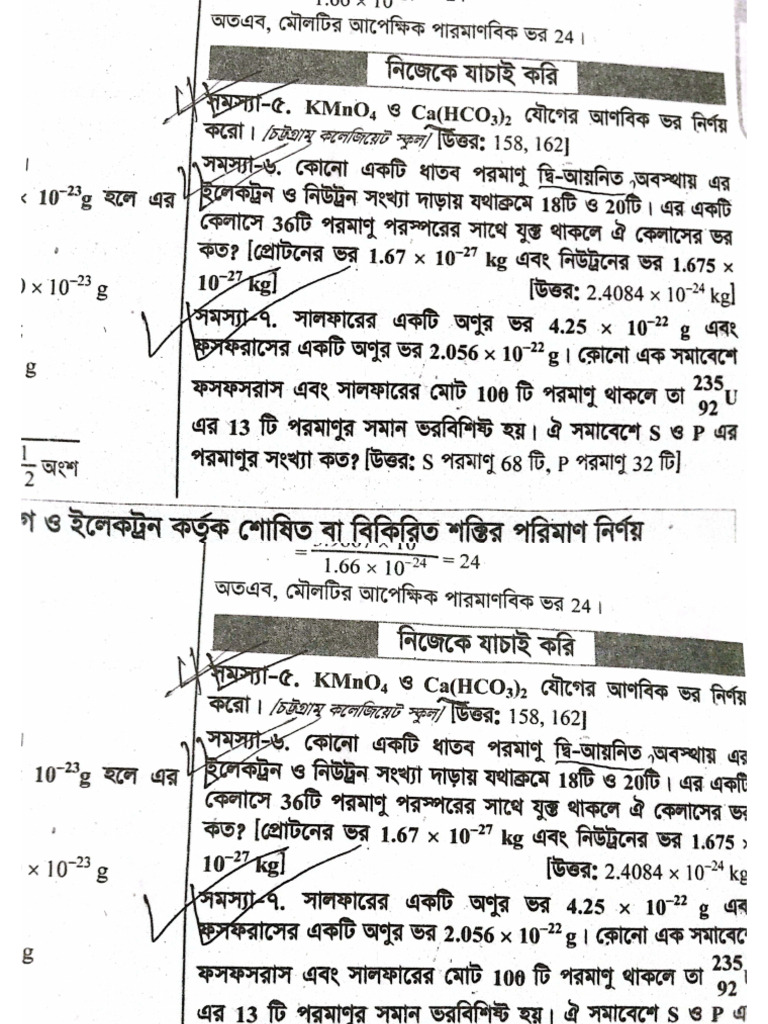 অতএব, মৌলটির আপেক্ষিক পারমাণবিক ভর 24।
নিজেকে যাচাই করি
সমস্যা-৫. KMnO₄ ও Ca(HCO₃)₂ যৌগের আণবিক ভর নির্ণয়
করো। [চট্টগ্রাম কলেজিয়েট স্কুল] [উত্তর: 158, 162]
সমস্যা-৬. কোনো একটি ধাতব পরমাণু দ্বি-আয়নিত অবস্থায় এর
× 10⁻²³g হলে এর
ইলেকট্রন ও নিউট্রন সংখ্যা দাড়ায় যথাক্রমে 18টি ও 20টি। এর একটি
কেলাসে 36টি পরমাণু পরস্পরের সাথে যুক্ত থাকলে ঐ কেলাসের ভর
কত? [প্রোটনের ভর 1.67 × 10⁻²⁷ kg এবং নিউট্রনের ভর 1.675 ×
) × 10⁻²³ g
10⁻²⁷ kg] [উত্তর: 2.4084 × 10⁻²⁴ kg]
সমস্যা-৭. সালফারের একটি অণুর ভর 4.25 × 10⁻²² g এবং
ফসফরাসের একটি অণুর ভর 2.056 × 10⁻²² g। কোনো এক সমাবেশে
g
ফসফসরাস এবং সালফারের মোট 100 টি পরমাণু থাকলে তা ²³⁵₉₂U
এর 13 টি পরমাণুর সমান ভরবিশিষ্ট হয়। ঐ সমাবেশে S ও P এর
1/2 অংশ
পরমাণুর সংখ্যা কত? [উত্তর: S পরমাণু 68 টি, P পরমাণু 32 টি]
ও ইলেকট্রন কর্তৃক শোষিত বা বিকিরিত শক্তির পরিমাণ নির্ণয়
= 1.66 × 10⁻²⁴ = 24
অতএব, মৌলটির আপেক্ষিক পারমাণবিক ভর 24।
নিজেকে যাচাই করি
সমস্যা-৫. KMnO₄ ও Ca(HCO₃)₂ যৌগের আণবিক ভর নির্ণয়
করো। [চট্টগ্রাম কলেজিয়েট স্কুল] [উত্তর: 158, 162]
সমস্যা-৬. কোনো একটি ধাতব পরমাণু দ্বি-আয়নিত অবস্থায় এর
10⁻²³g হলে এর
ইলেকট্রন ও নিউট্রন সংখ্যা দাড়ায় যথাক্রমে 18টি ও 20টি। এর একটি
কেলাসে 36টি পরমাণু পরস্পরের সাথে যুক্ত থাকলে ঐ কেলাসের ভর
কত? [প্রোটনের ভর 1.67 × 10⁻²⁷ kg এবং নিউট্রনের ভর 1.675 ×
× 10⁻²³ g
10⁻²⁷ kg] [উত্তর: 2.4084 × 10⁻²⁴ kg
সমস্যা-৭. সালফারের একটি অণুর ভর 4.25 × 10⁻²² g এব
ফসফরাসের একটি অণুর ভর 2.056 × 10⁻²² g। কোনো এক সমাবেশে
g
ফসফসরাস এবং সালফারের মোট 100 টি পরমাণু থাকলে তা ²³⁵₉₂
এর 13 টি পরমাণুর সমান ভরবিশিষ্ট হয়। ঐ সমাবেশে S ও P এ